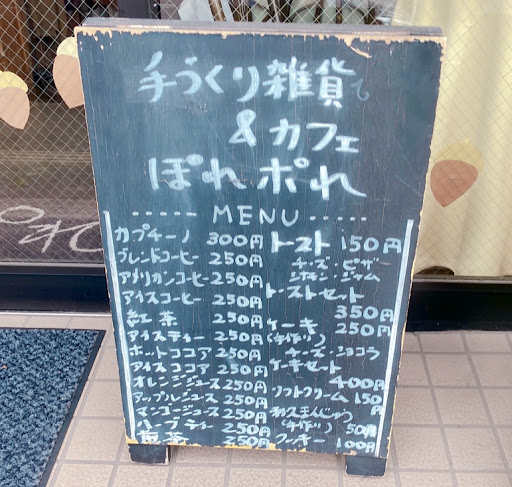 手づくり雑貨
&カフェ
ぽれポれ
-----MENU-----
カプチーノ 300円
ブレンドコーヒー 250円
アメリカンコーヒー 250円
アイスコーヒー 250円
紅茶 250円
アイスティー 250円
ホットココア 250円
アイスココア 250円
オレンジジュース 250円
アップルジュース 250円
マンゴージュース 250円
ハーブティー 250円
煎茶 250円
トースト 150円
チーズ・ピザ
シナモン・ジャム
トーストセット
350円
ケーキ 250円
(手作り)
チーズ・ショコラ
ケーキセット
400円
ソフトクリーム 150円
まんじゅう
(手作り) 50円
クッキー 100円